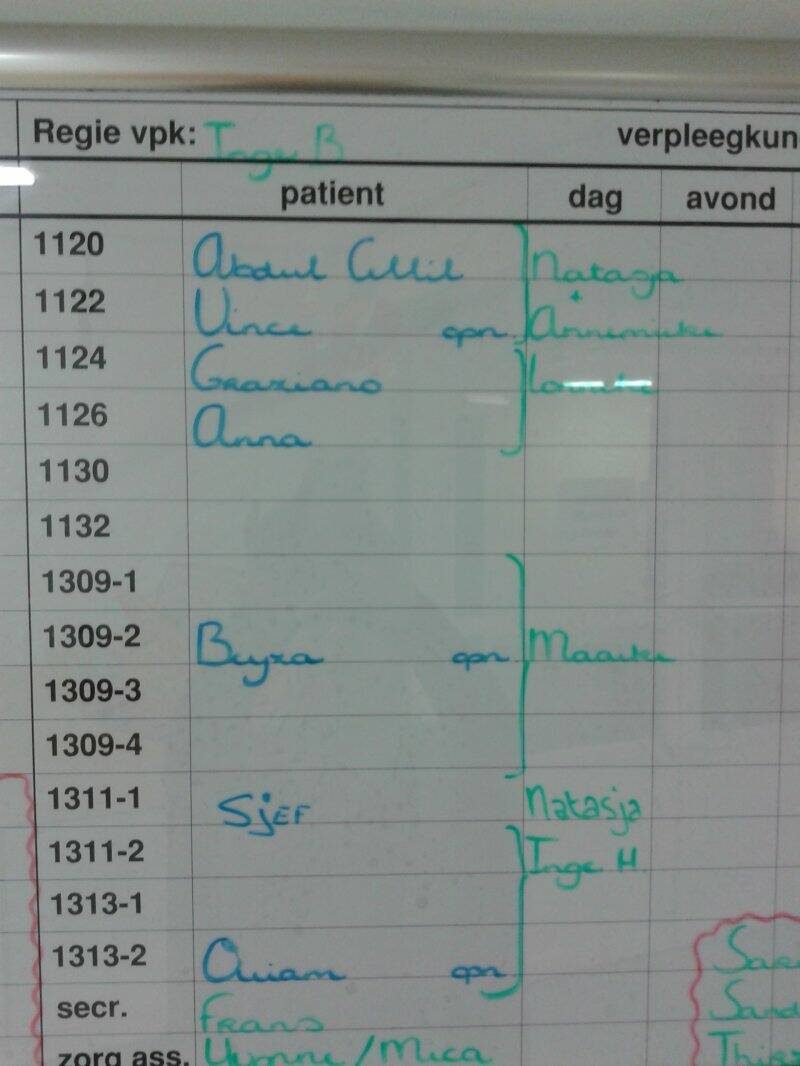 Regie vpk: Inge B verpleegkun
patient dag avond
1120 Abdul
1122 Vince opn Annemieke
1124 Graziano
1126 Anna
1130
1132
1309-1
1309-2 opn Maaike
1309-3
1309-4
1311-1 SjEF Natasja
1311-2 Inge H
1313-1
1313-2 opn
secr. Frans
zorg ass. / Mica